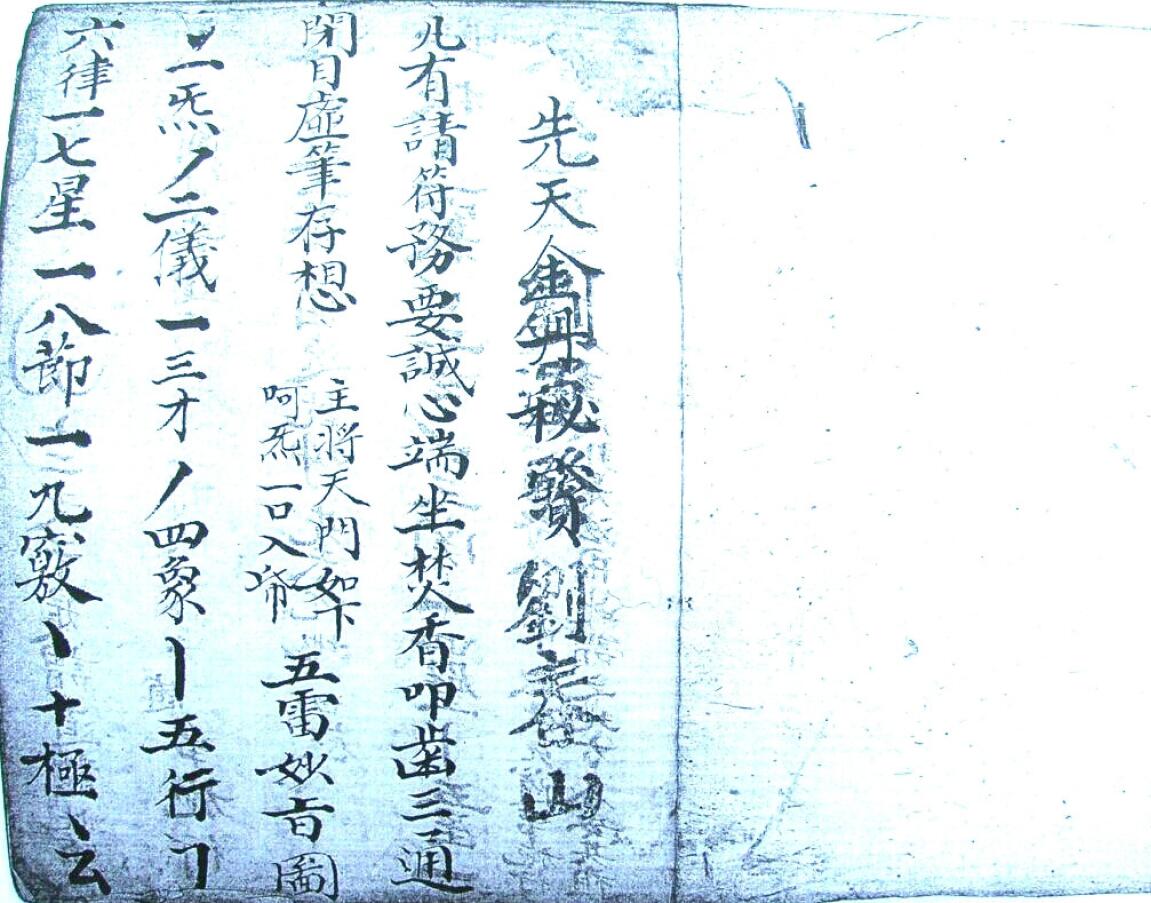 先天金丹秘劉山
凢有請符務要誠心端坐焚香叩齒三通
閉目虛筆存想
主將天門如下
呵炁一口入帋
五雷妙旨圖
丶一炁丿二儀一三才丿四象丨五行㇆
六律一七星一八節一九竅丶十極丶云